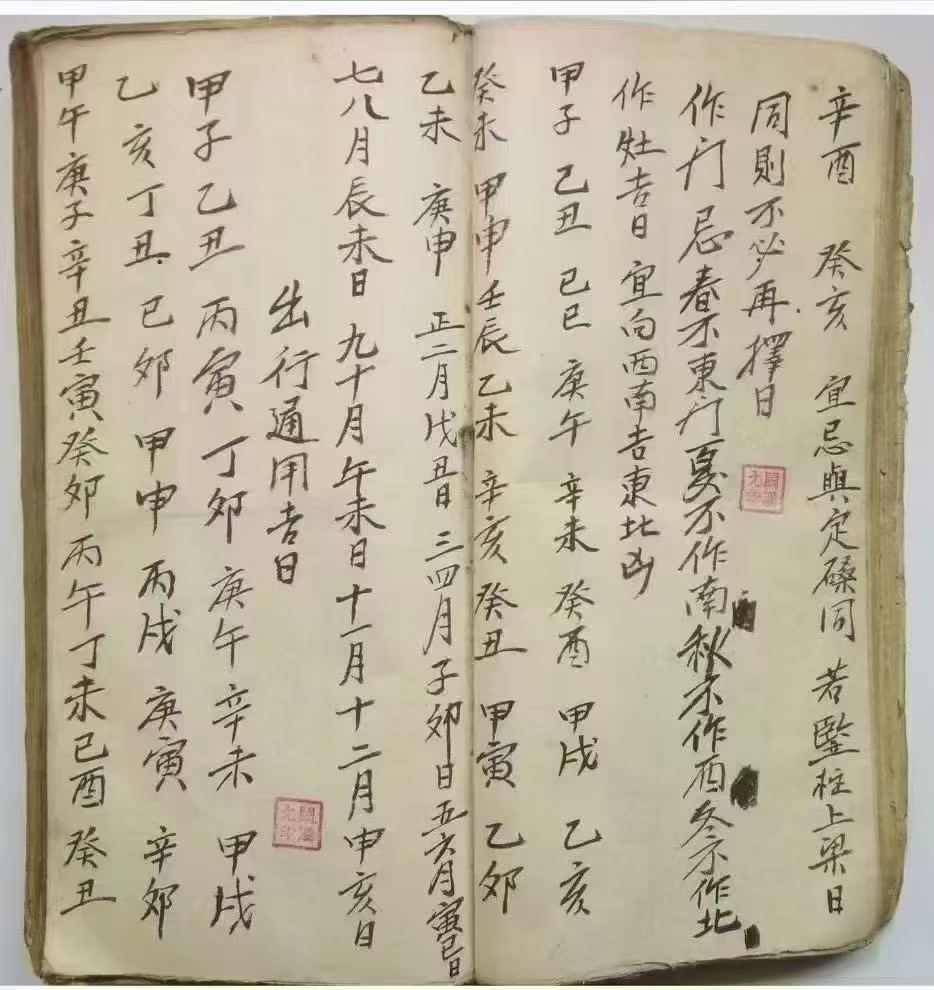 辛酉 癸亥 宜忌與定磉同 若竪柱上梁日
同則不必再擇日
作门 忌春不東门夏不作南秋不作西冬不作北
作灶吉日 宜向西南吉東北凶
甲子 乙丑 己巳 庚午 辛未 癸酉 甲戌 乙亥
癸未 甲申 壬辰 乙未 辛亥 癸丑 甲寅 乙卯
乙未 庚申 正二月戊丑日 三四月子卯日 五六月寅巳日
七八月辰未日 九十月午未日 十一月十二月申亥日
出行通用吉日
甲子 乙丑 丙寅 丁卯 庚午 辛未 甲戌
乙亥 丁丑 己卯 甲申 丙戌 庚寅 辛卯
甲午 庚子 辛丑 壬寅 癸卯 丙午 丁未 己酉 癸丑